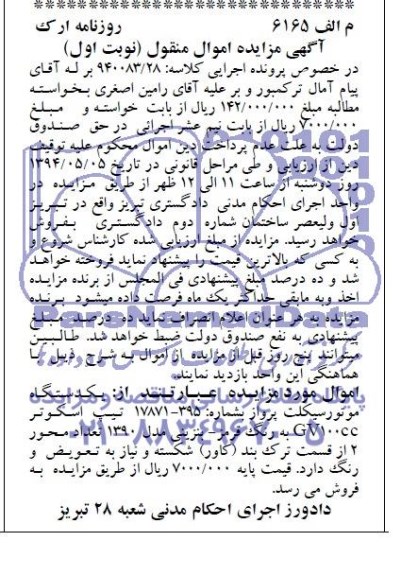 م الف ۶۱۶۵ روزنامه ارک
آگهی مزایده اموال منقول (نوبت اول)
در خصوص پرونده اجرایی کلاسه: ۹۴۰۰۸۳/۲۸ بر له آقای
پیام آمال ترکمپور و بر علیه آقای رامین اصغری بخواسته
مطالبه مبلغ ۱۴۲/۰۰۰/۰۰۰ ریال از بابت خواسته و مبلغ
۷/۰۰۰/۰۰۰ ریال از بابت نیم عشر اجرائی در حق صندوق
دولت به علت عدم پرداخت دین اموال محکوم علیه توقیف
دین از ارزیابی و طی مراحل قانونی در تاریخ ۱۳۹۴/۰۵/۰۵
روز دوشنبه از ساعت ۱۱ الی ۱۲ ظهر از طریق مزایده در
واحد اجرای احکام مدنی دادگستری تبریز واقع در تبریز
اول ولیعصر ساختمان شماره دوم دادگستری بفروش
خواهد رسید. مزایده از مبلغ ارزیابی شده کارشناس شروع و
به کسی که بالاترین قیمت را پیشنهاد نماید فروخته خواهد
شد و ده درصد مبلغ پیشنهادی فی المجلس از برنده مزایده
اخذ وبه مابقی حداکثر یک ماه فرصت داده میشود برنده
مزایده به هر عنوان اعلام انصراف نماید ده درصد مبلغ
پیشنهادی به نفع صندوق دولت ضبط خواهد شد. طالبین
میتوانند پنج روز قبل از مزایده از اموال به شرح ذیل با
هماهنگی این واحد بازدید نمایند.
اموال مورد مزایده عبارتند از: یکدستگاه
موتورسیکلت پرواز بشماره: ۳۹۵-۱۷۸۷۱ تیپ اسکوتر
GV۱۰۰cc به رنگ قرمز - بنزینی مدل ۱۳۹۰ تعداد محور
۲ از قسمت ترک بند (کاور) شکسته و نیاز به تعویض و
رنگ دارد. قیمت پایه ۷/۰۰۰/۰۰۰ ریال از طریق مزایده به
فروش می رسد.
دادورز اجرای احکام مدنی شعبه ۲۸ تبریز
ParsNamadData
۰۲۱-۸۸۳۴۹۶۷۰-۵